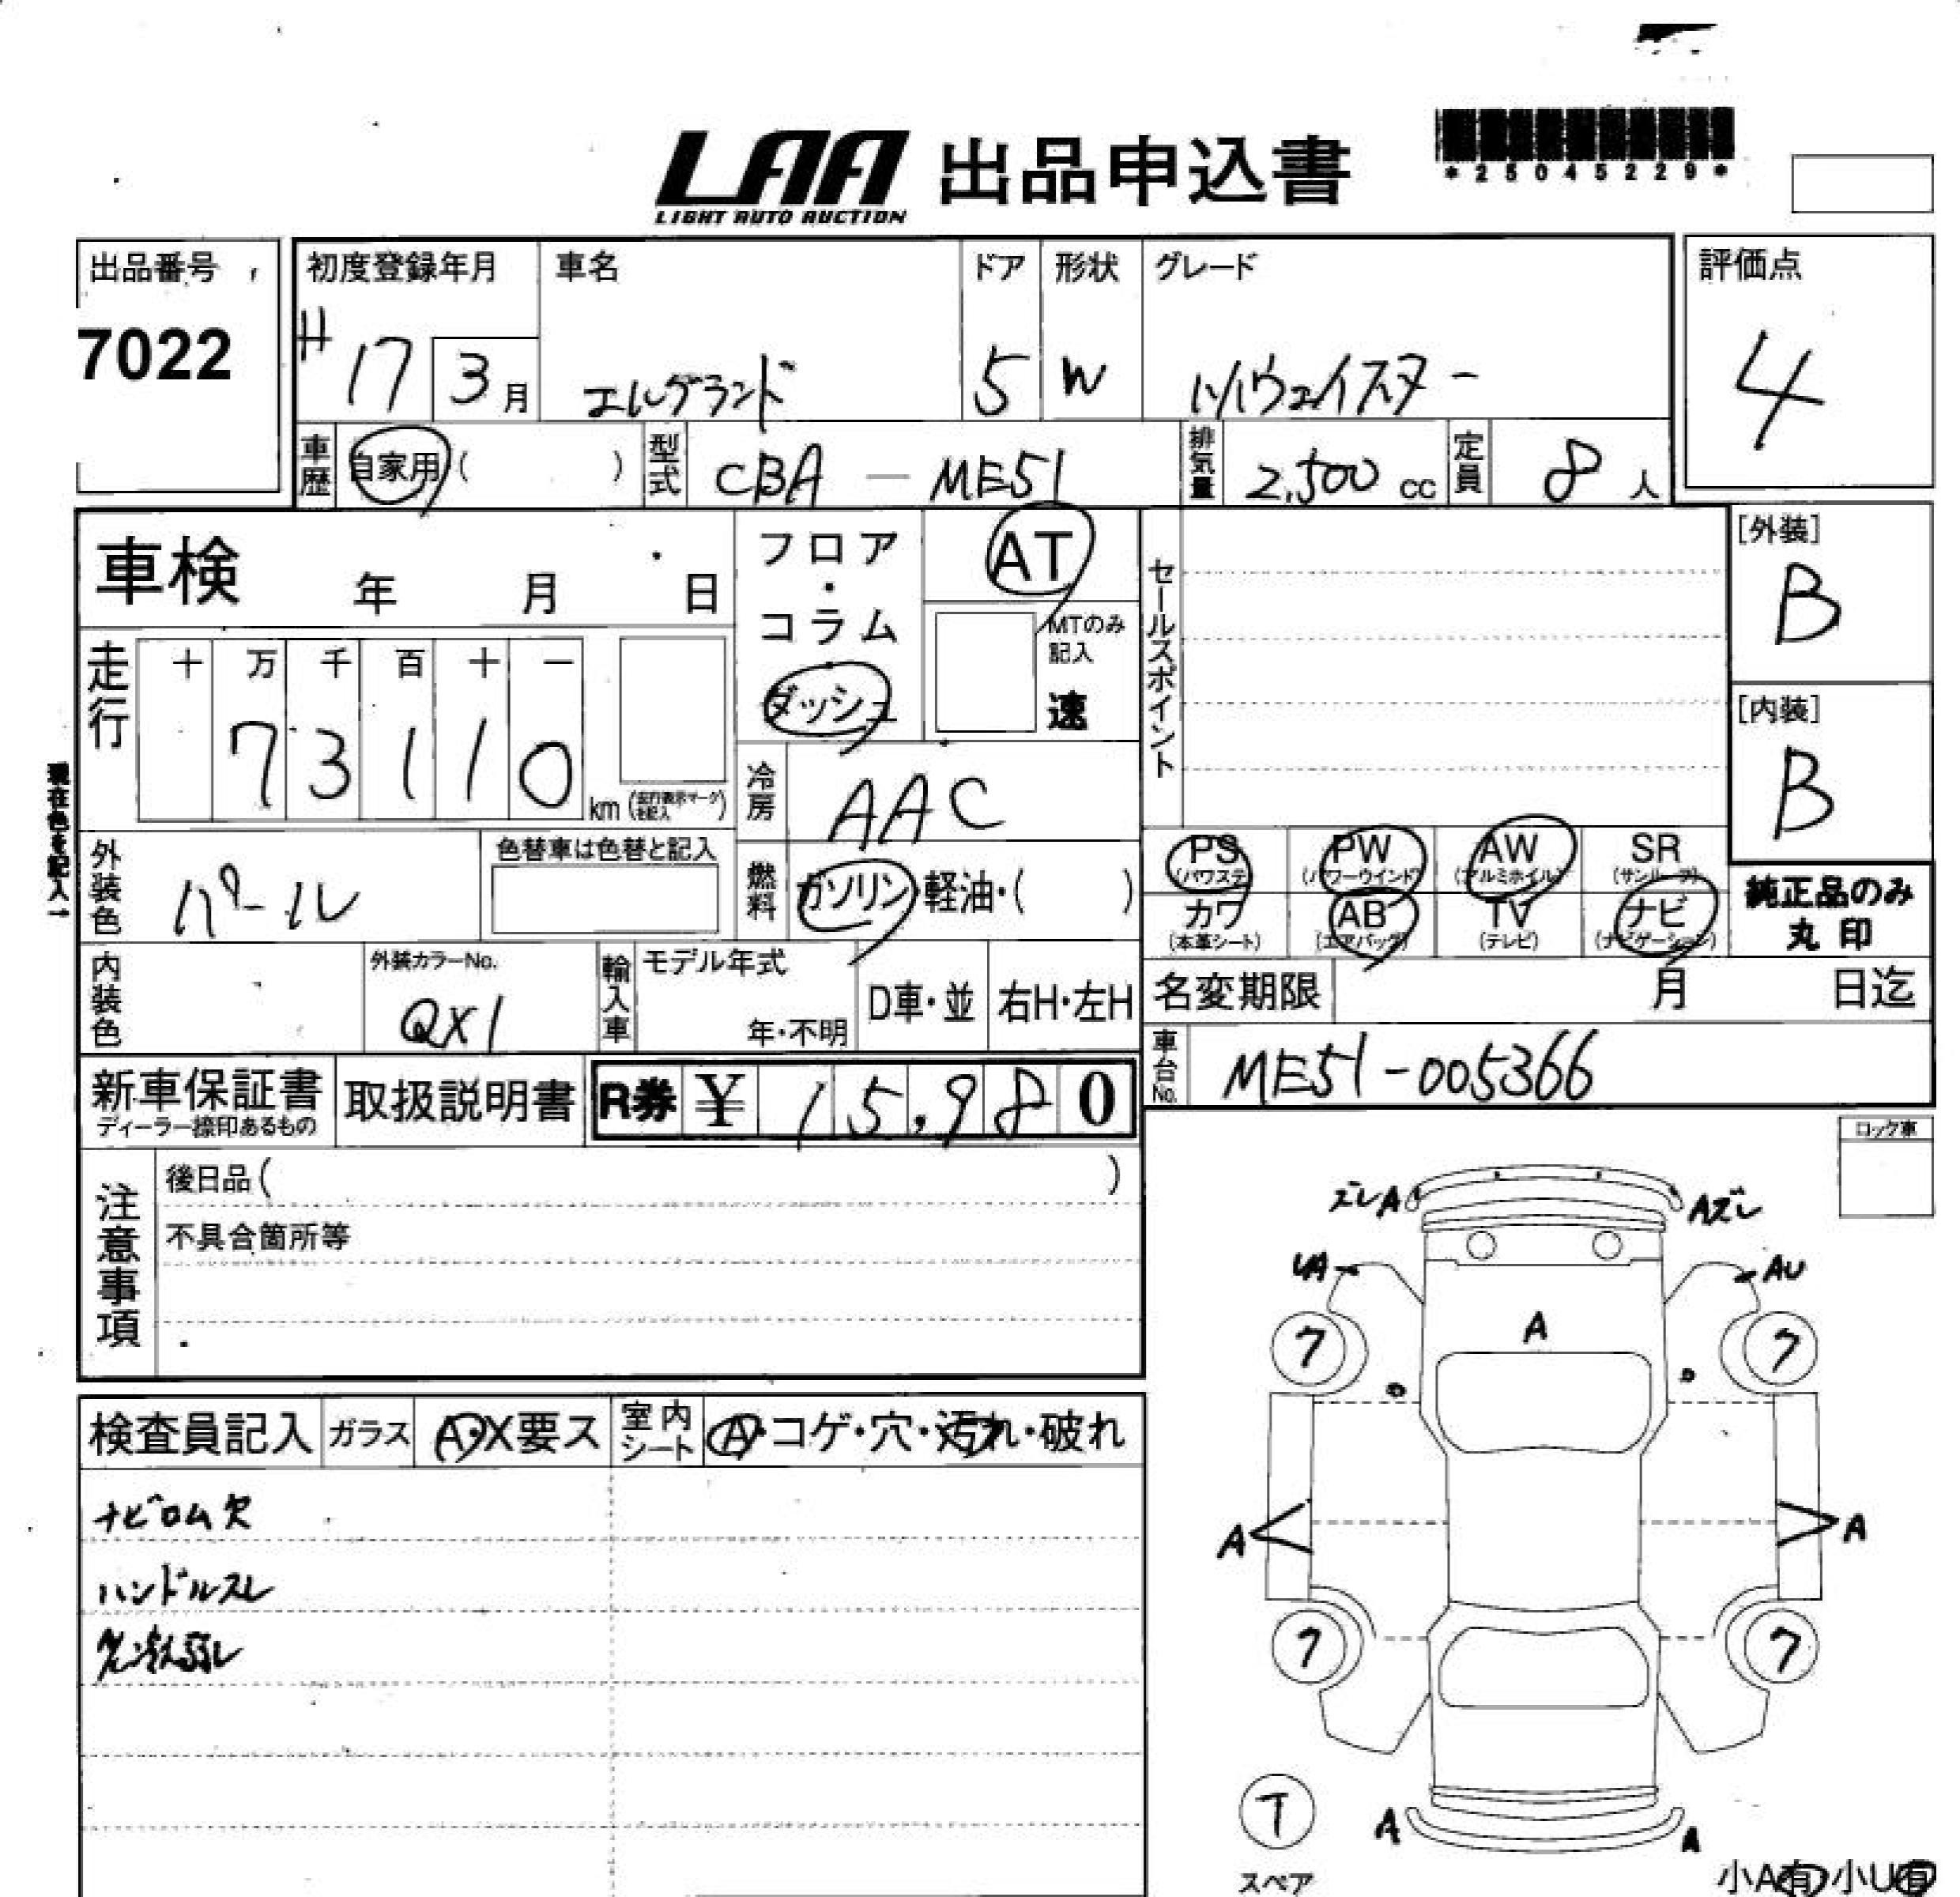 LAA 出品申込書
LIGHT AUTO AUCTION
*25045229*
出品番号
7022
初度登録年月 車名 ドア 形状 グレード
H17 3月 エルグランド 5 W ハイウェイスター
評価点
4
車歴 自家用( ) 型式 CBA-ME51 排気量 2,500 cc 定員 8人
車検 年 月 日
フロア・コラム ダッシュ
AT
MTのみ記入
速
セールスポイント
[外装]
B
[内装]
B
走行 十 万 千 百 十 一
73110 km
冷房 AAC
現在色を記入→
外装色 パール
色替車は色替と記入
燃料 ガソリン・軽油・( )
PS (パワステ) PW (パワーウインド) AW (アルミホイル) SR (サンルーフ)
カワ (本革シート) AB (エアバッグ) TV (テレビ) ナビ (ナビゲーション)
純正品のみ
丸印
内装色
外装カラーNo.
QX1
輸入車 モデル年式
年・不明
D車・並 右H・左H
名変期限 月 日迄
車台No. ME51-005366
新車保証書
ディーラー捺印あるもの
取扱説明書
R券 ¥ 15,980
ロック車
注意事項
後日品( )
不具合箇所等
検査員記入 ガラス A・X要ス 室内シート A・コゲ・穴・汚れ・破れ
ナビロム欠
ハンドルスレ
ズレA Aズレ
UA AU
A
7 7
A A
7 7
T
スペア
A A
小A有 小U有